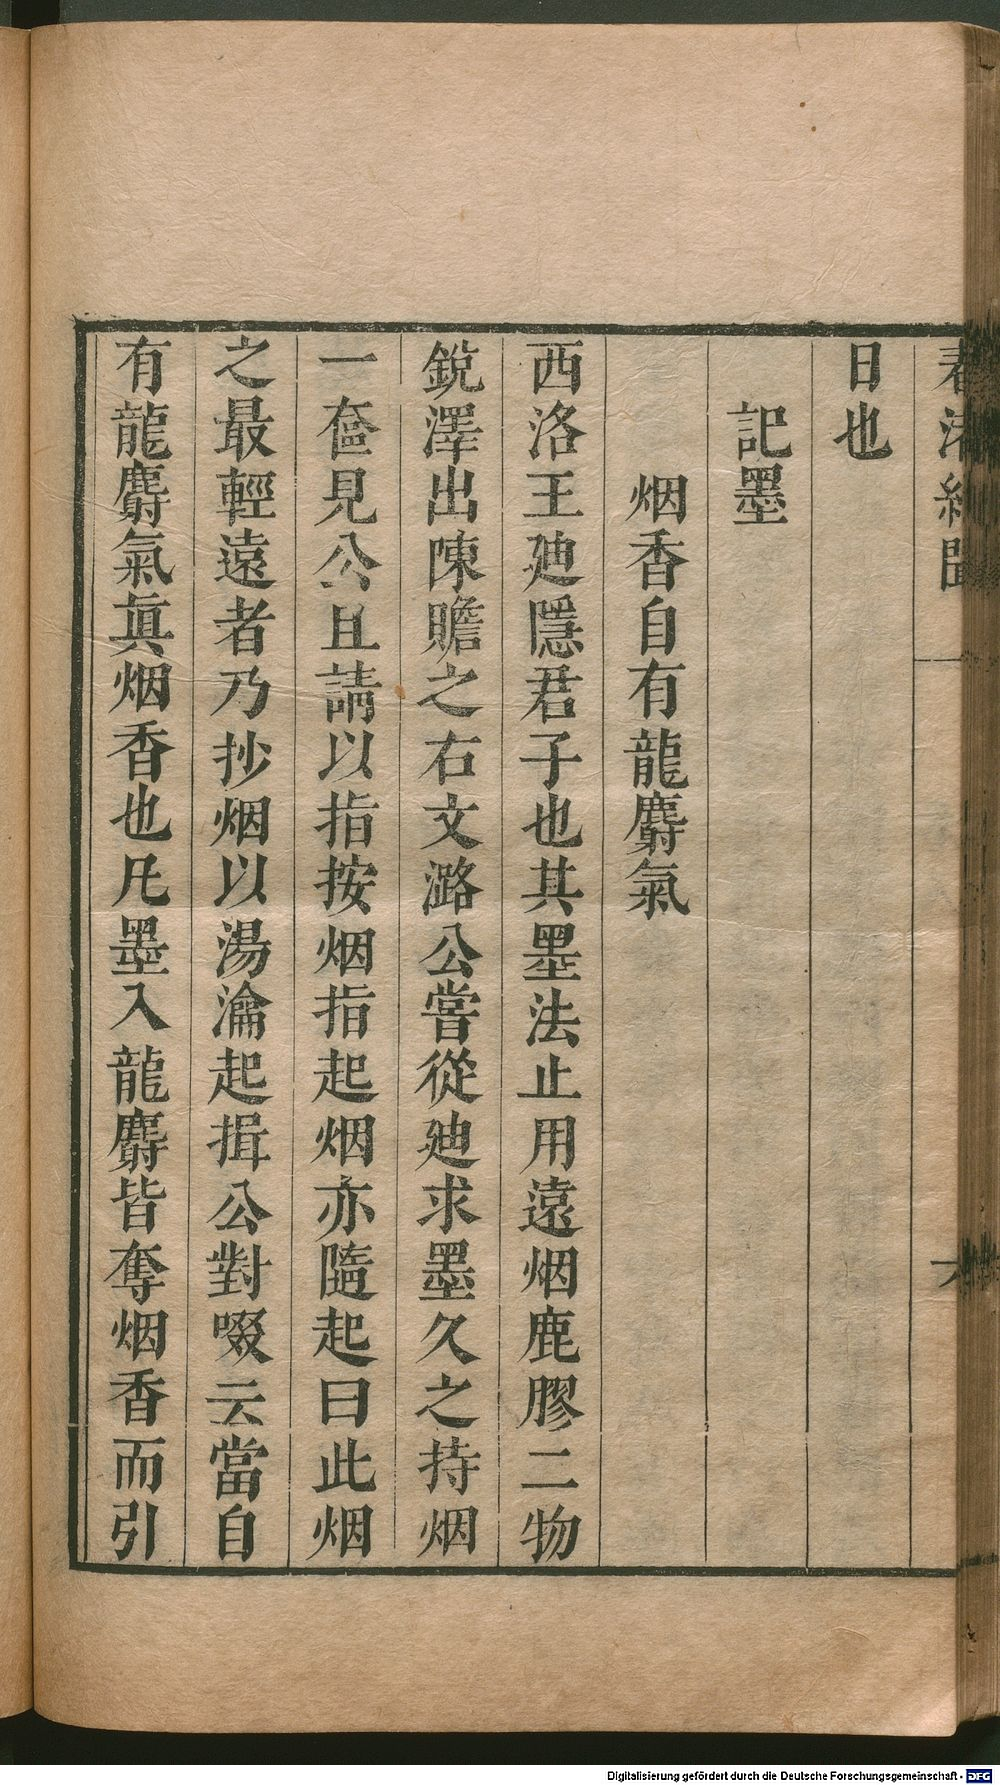 春渚紀聞
日也
記墨
烟香自有龍麝氣
西洛王廸隱君子也其墨法止用遠烟鹿膠二物
銳澤出陳贍之右文潞公嘗從廸求墨久之持烟
一奩見公且請以指按烟指起烟亦隨起曰此烟
之最輕遠者乃抄烟以湯瀹起揖公對啜云當自
有龍麝氣眞烟香也凡墨入龍麝皆奪烟香而引
Digitalisierung gefördert durch die Deutsche Forschungsgemeinschaft - DFG